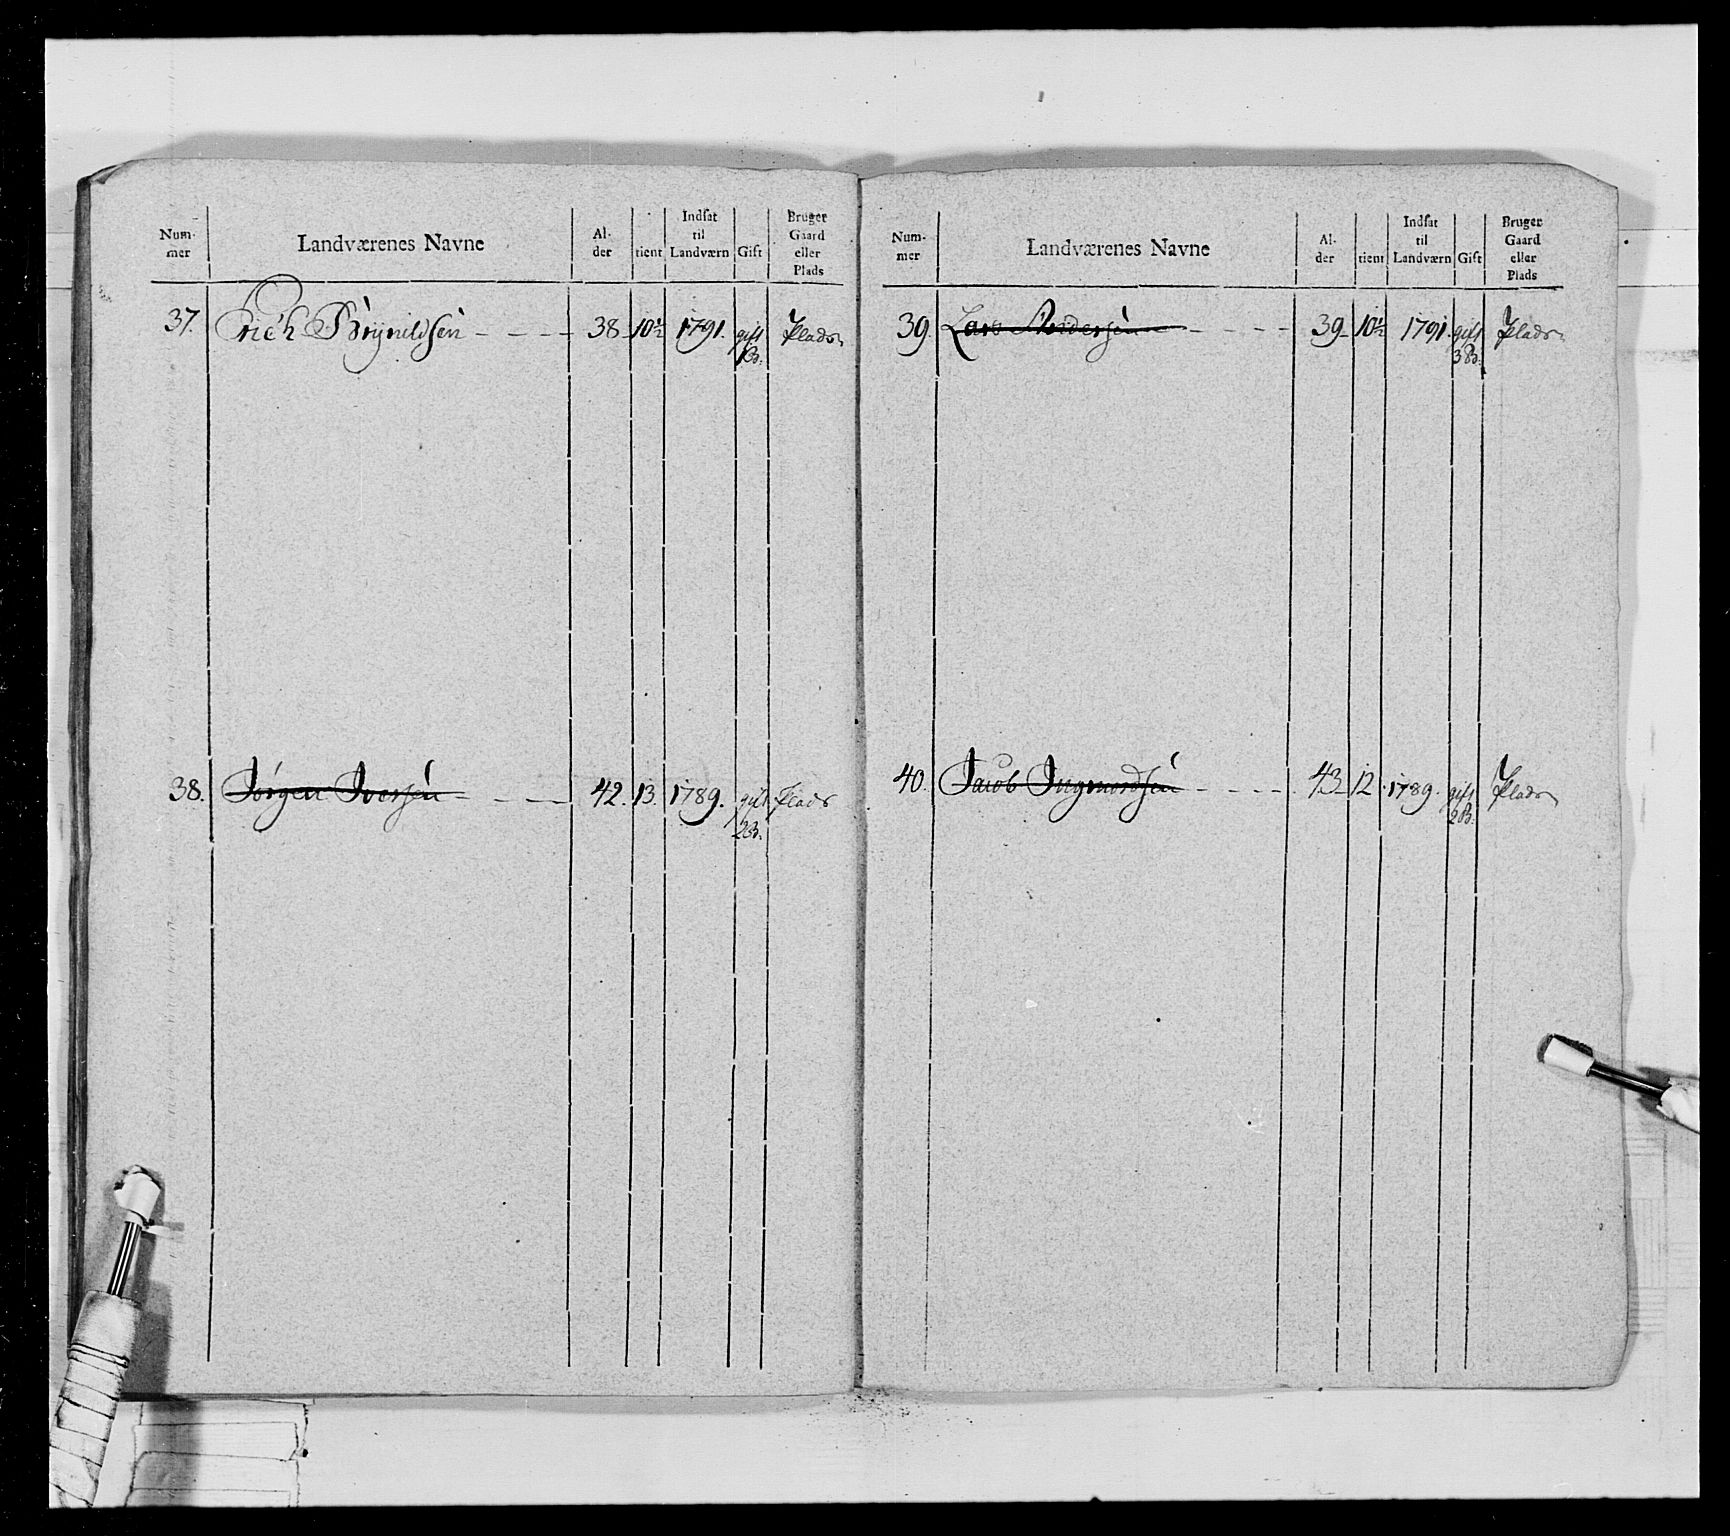 Num-
mer
Landværenes Navne
Al-
der
tient
Indsat
til
Landværn
Gift
Bruger
Gaard
eller
Plads
37. Erich Brynildsen 38 10½ 1791. gift Plads
B.
38. Jørgen Iversen 42. 13. 1789. gift Plads
2 B.
Num-
mer
Landværenes Navne
Al-
der
tient
Indsat
til
Landværn
Gift
Bruger
Gaard
eller
Plads
39. Lars Andersen 39 10½ 1791. gift Plads
3 B.
40. Jacob Ingmordsen 43 12 1789. gift Plads
2 B.